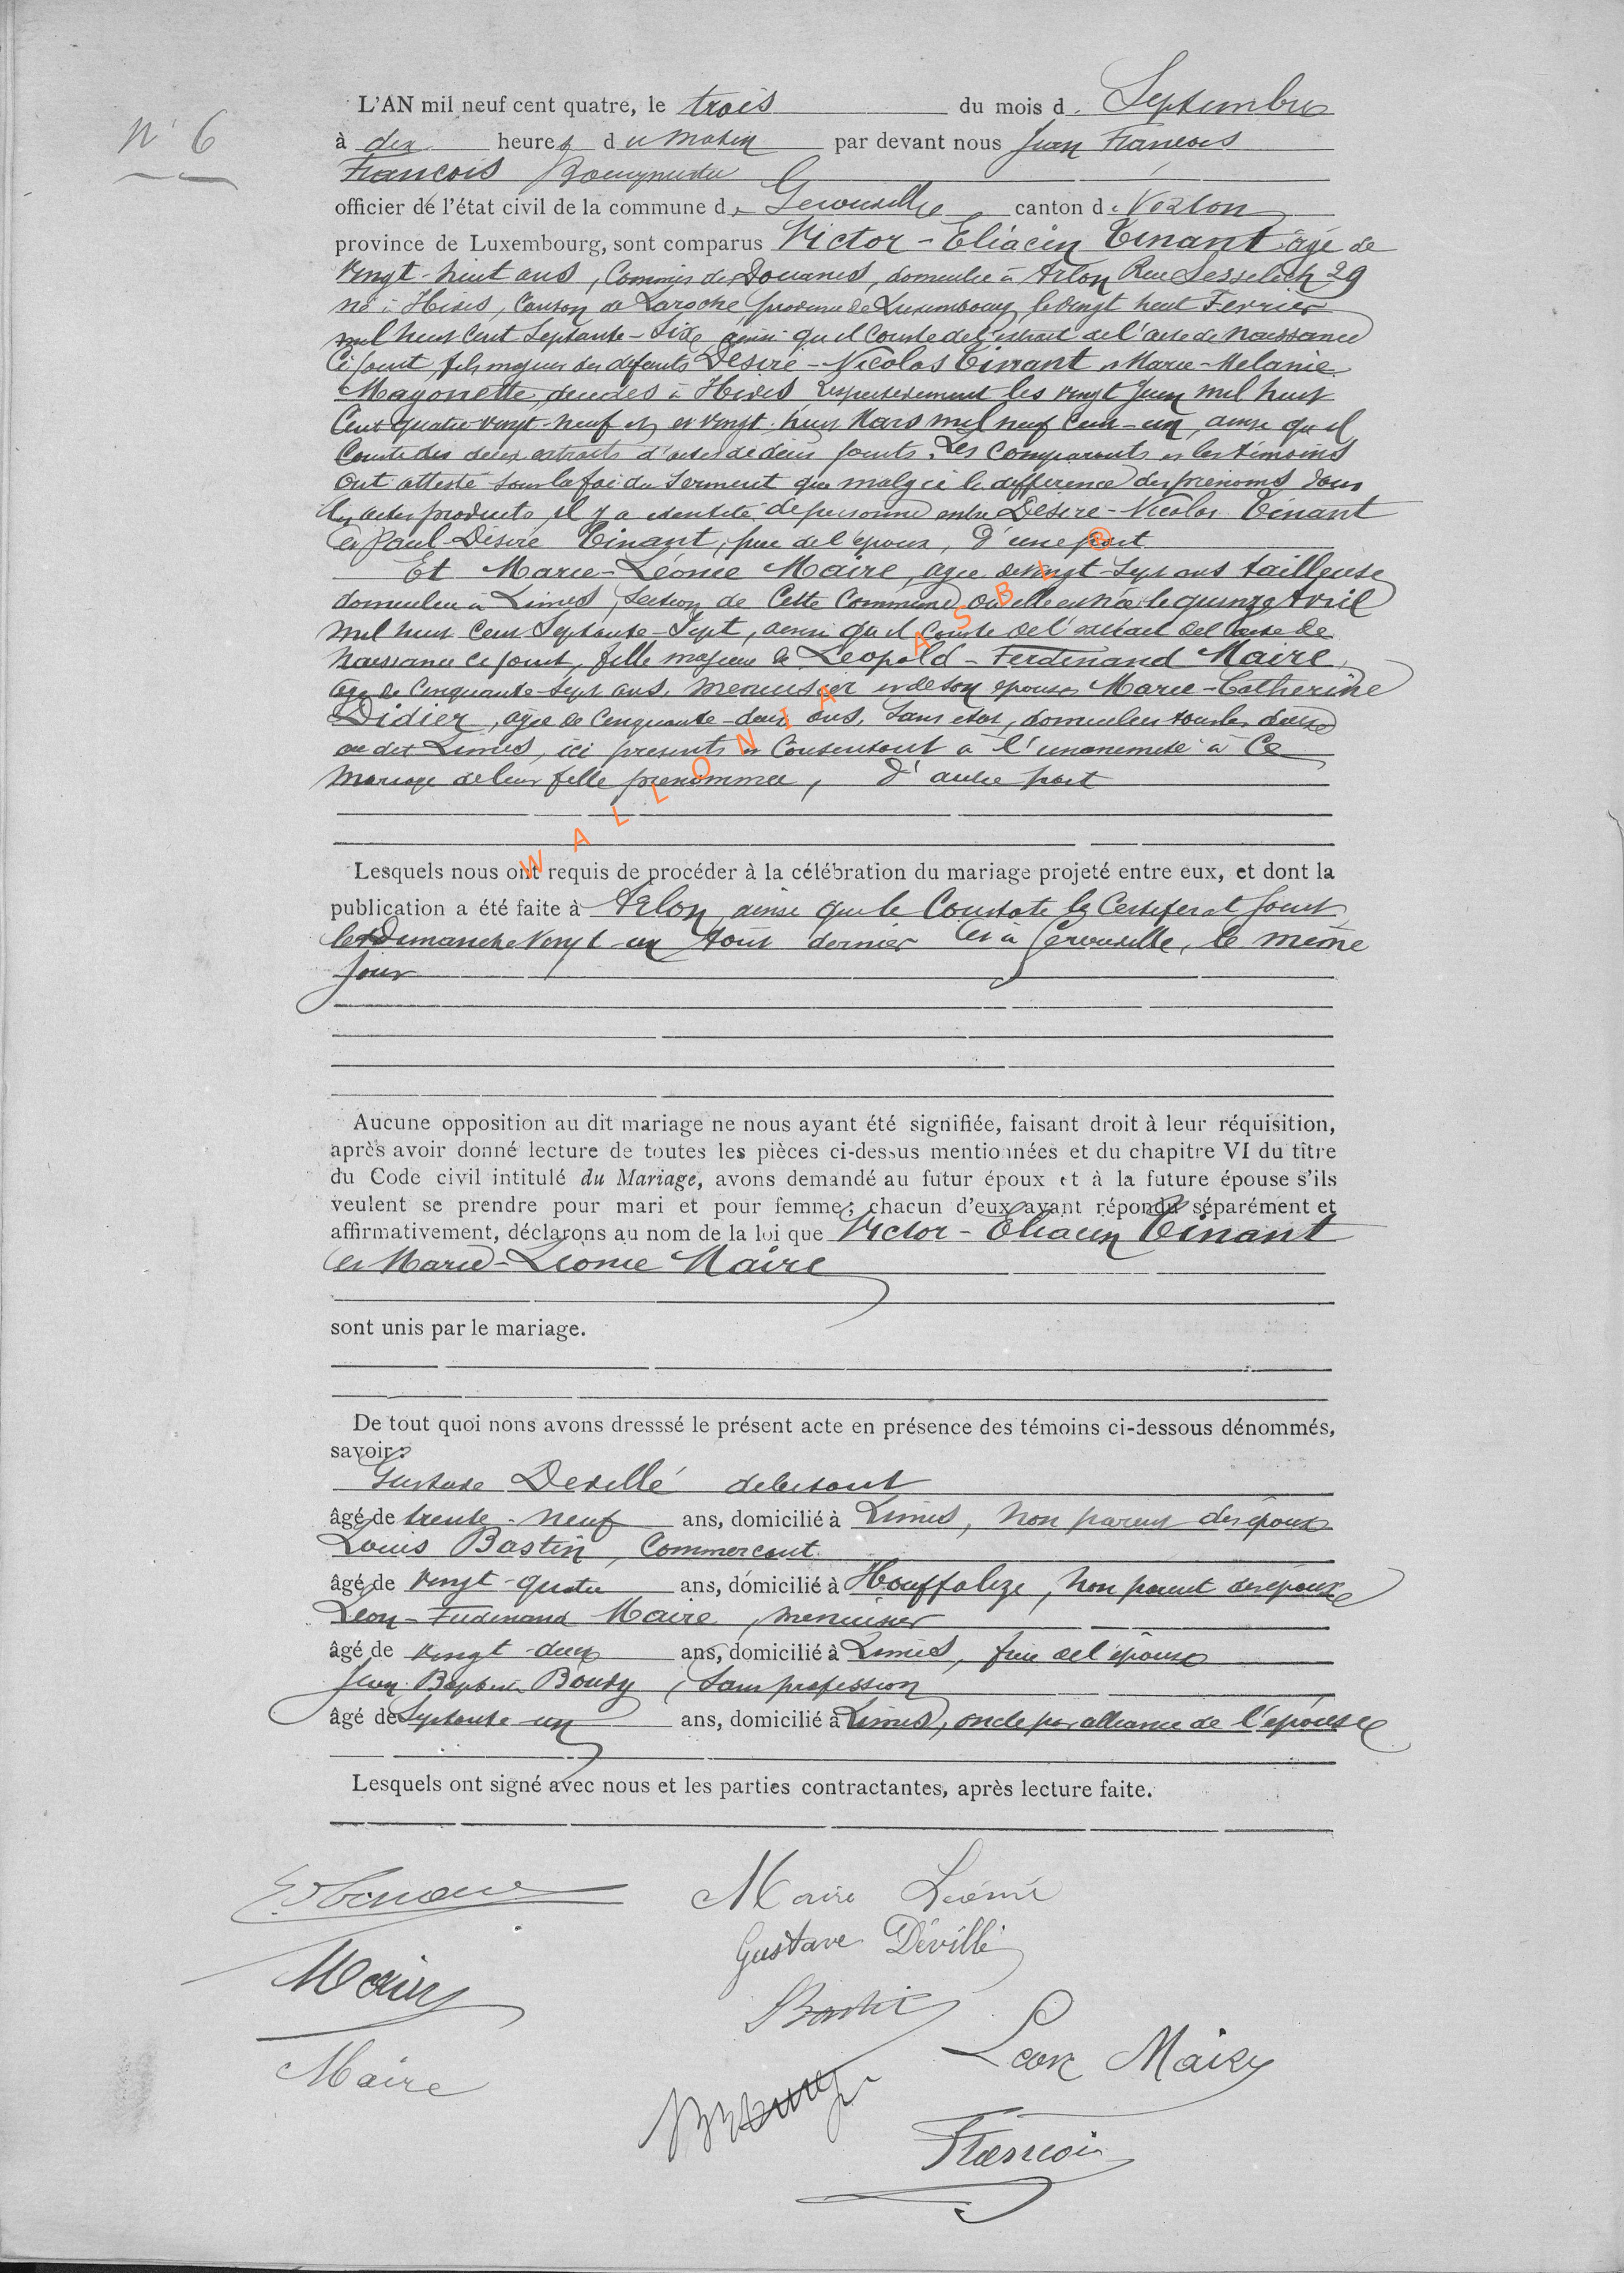 N° 6
L'AN mil neuf cent quatre, le trois du mois d. Septembre
à dix heures du matin par devant nous Jean François
François Bourgmestre
officier de l'état civil de la commune d. Gerouville canton d. Virton
province de Luxembourg, sont comparus Victor - Eliacin Tinant agé de
vingt-huit ans, Commis des Douanes, domicilié à Arlon Rue Sesselich 29
né à Hives, Canton de Laroche, province de Luxembourg, le vingt huit Fevrier
mil huit cent Septante-Six, ainsi qu'il conste de l'extrait de l'acte de naissance
ci joint, fils majeur des defunts Désiré-Nicolas Tinant et Marie-Melanie
Magonette, décédés à Hives respectivement les vingt Juin mil huit
Cent quatre vingt-neuf et vingt huit Mars mil neuf Cent-un, ainsi qu'il
Conste des deux extraits d'actes de décès joints. Les Comparants et les témoins
ont attesté sous la foi du Serment que malgré la différence des prénoms dans
les actes produits, il y a identité de personne entre Désiré-Nicolas Tinant
et Paul-Désiré Tinant, père de l'époux, D'une part
Et Marie-Léonie Maire, agée de vingt-Sept ans tailleuse
domiciliée à Limes, Section de Cette Commune où elle est née le quinze Avril
mil huit Cent Septante-Sept, ainsi qu'il Conste de l'extrait de l'acte de
naissance ci joint, fille majeure de Léopold-Ferdinand Maire,
agé de Cinquante-Sept ans, menuisier et de son épouse Marie-Catherine
Didier, agée de Cinquante-deux ans, Sans état, domiciliés tous les deux
au dit Limes, ici présents et Consentant à l'unanimité à Ce
mariage de leur fille prénommée, D'autre part
WALLONIA ASBL ®
Lesquels nous ont requis de procéder à la célébration du mariage projeté entre eux, et dont la
publication a été faite à Arlon, ainsi que le Constate le Certificat joint
le Dimanche vingt-un Août dernier et à Gerouville, le même
jour
Aucune opposition au dit mariage ne nous ayant été signifiée, faisant droit à leur réquisition,
après avoir donné lecture de toutes les pièces ci-dessus mentionnées et du chapitre VI du titre
du Code civil intitulé du Mariage, avons demandé au futur époux et à la future épouse s'ils
veulent se prendre pour mari et pour femme; chacun d'eux ayant répondu séparément et
affirmativement, déclarons au nom de la loi que Victor-Eliacin Tinant
et Marie-Léonie Maire
sont unis par le mariage.
De tout quoi nons avons dresssé le présent acte en présence des témoins ci-dessous dénommés,
savoir:
Gustave Devillé débitant
âgé de trente-neuf ans, domicilié à Limes, non parent des époux
Louis Bastin, Commerçant
âgé de vingt-quatre ans, domicilié à Houffalize, non parent des époux
Léon-Ferdinand Maire, menuisier
âgé de vingt-deux ans, domicilié à Limes, frère de l'épouse
Jean Baptiste Boudy, Sans profession
âgé de Septante un ans, domicilié à Limes, oncle par alliance de l'épouse
Lesquels ont signé avec nous et les parties contractantes, après lecture faite.
Maire Léonie
Gustave Dévillé
Bastin
Léon Maire
Maire
François